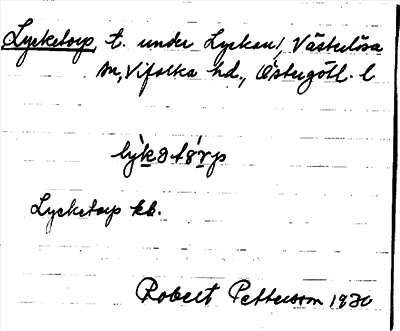 Lycketorp, t. under Lyckan, Västerlösa
sn, Vifolka hd., Östergötl. l
Lycketorp kb.
Robert Pettersson 1930